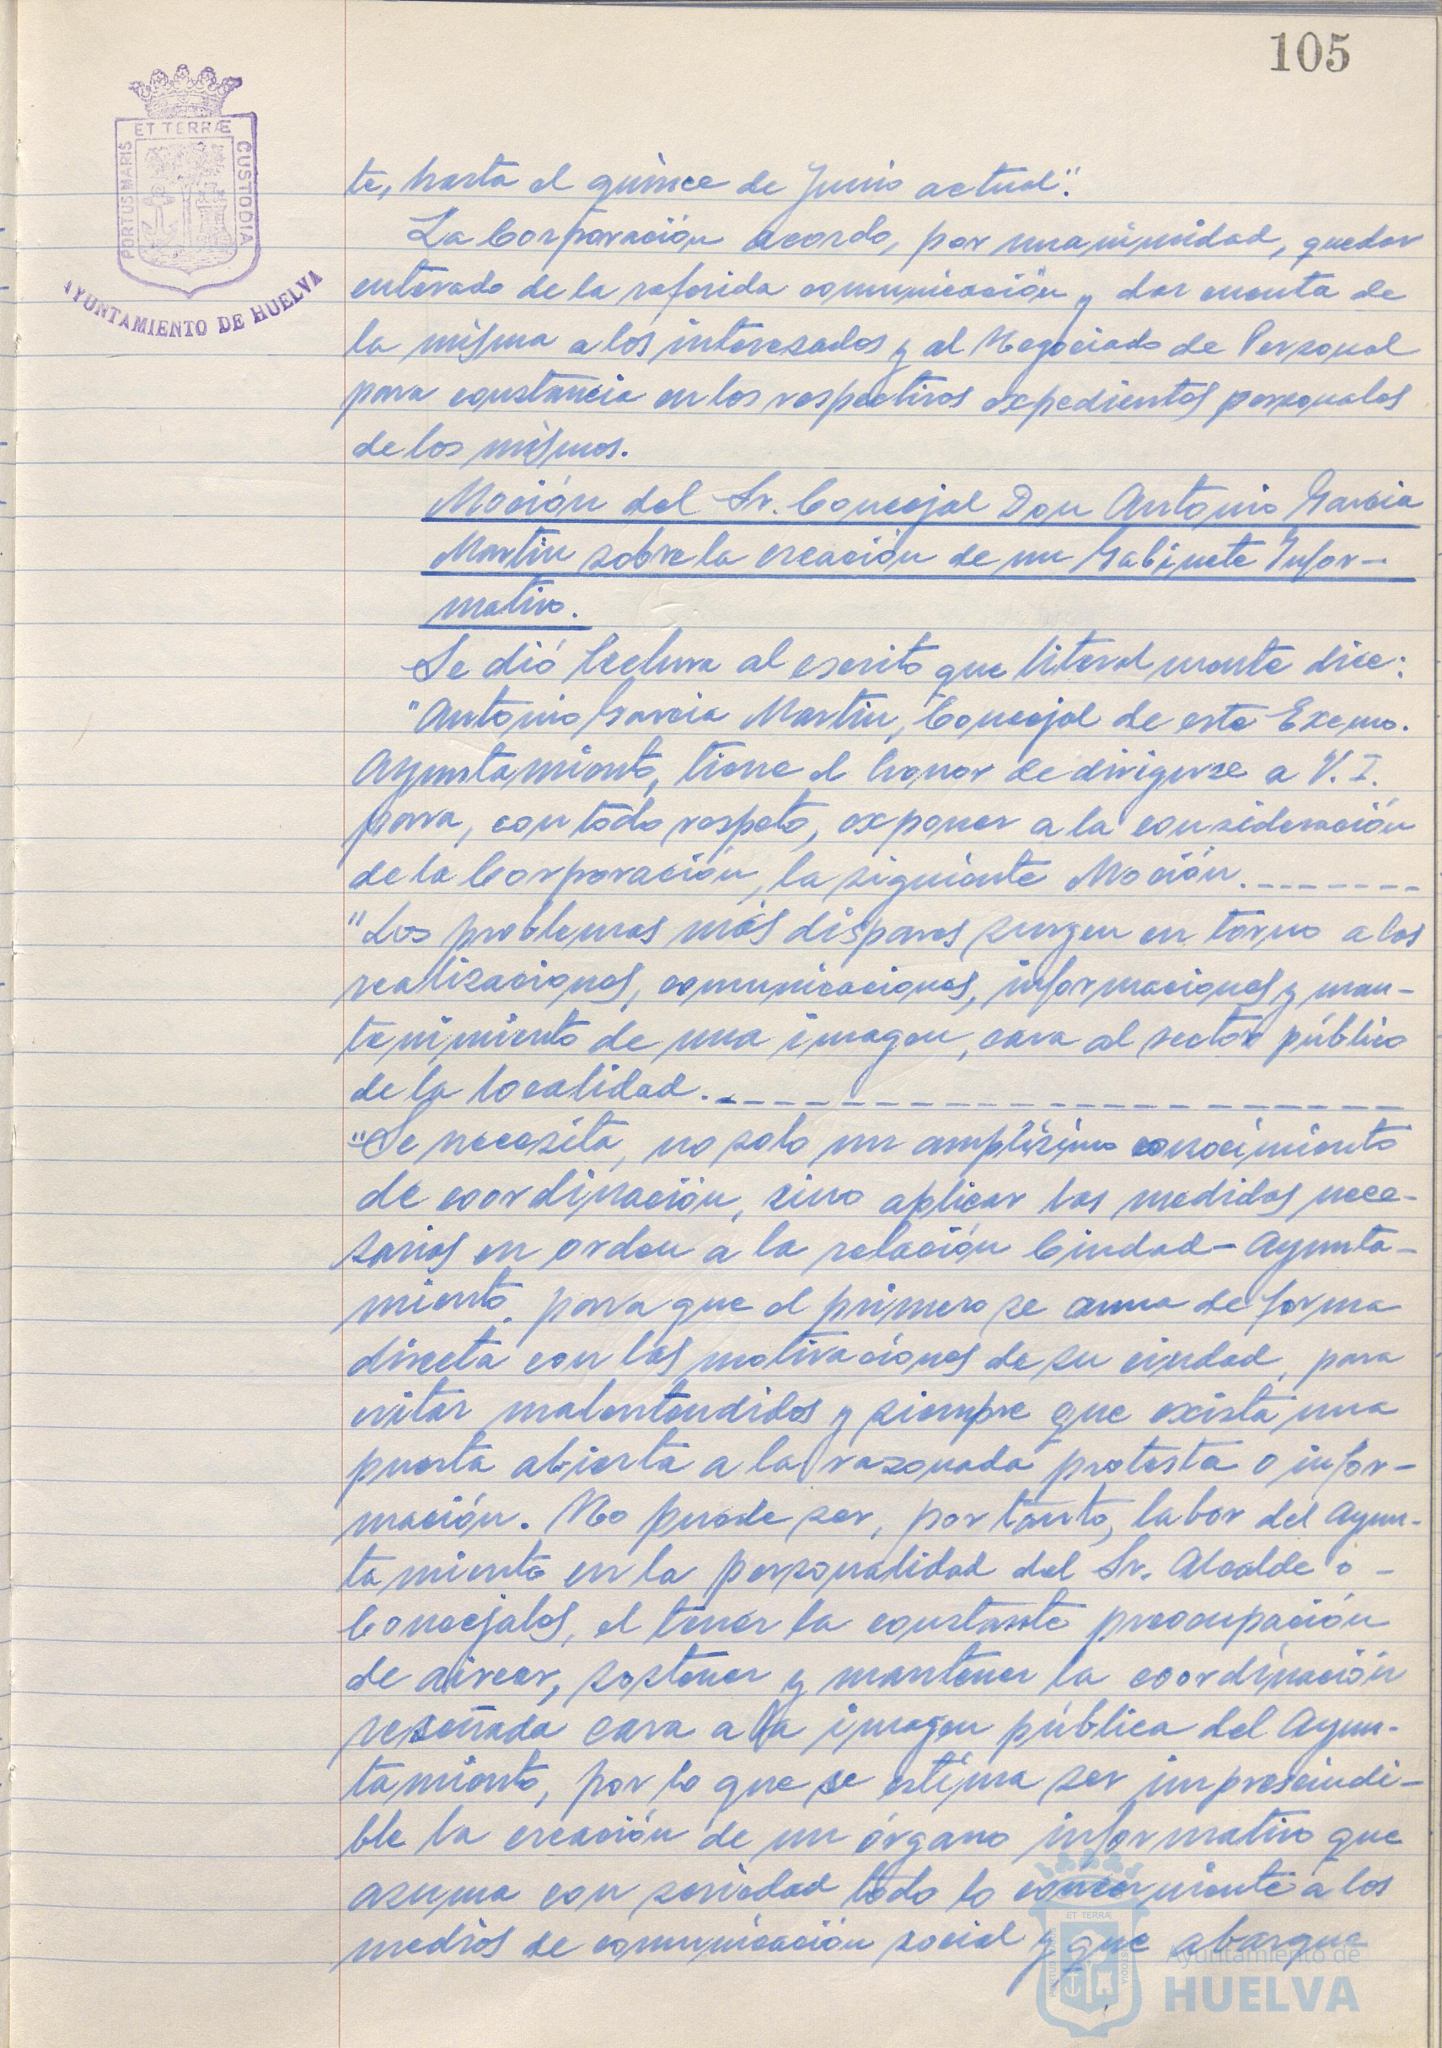 105
ET TERRÆ
PORTUS MARIS
CUSTODIA
AYUNTAMIENTO DE HUELVA
te, hasta el quince de Junio actual".
La Corporación acordó, por unanimidad, quedar
enterado de la referida comunicación y dar cuenta de
la misma a los interesados y al Negociado de Personal
para constancia en los respectivos expedientes personales
de los mismos.
Moción del Sr. Concejal Don Antonio García
Martín sobre la creación de un Gabinete Infor-
mativo.
Se dió lectura al escrito que literalmente dice:
"Antonio García Martín, Concejal de este Excmo.
Ayuntamiento, tiene el honor de dirigirse a V. I.
para, con todo respeto, exponer a la consideración
de la Corporación, la siguiente Moción.--------
"Los problemas más dispares surgen en torno a las
realizaciones, comunicaciones, informaciones y man-
tenimiento de una imagen, cara al sector público
de la localidad.----------------
"Se necesita, no solo un amplísimo conocimiento
de coordinación, sino aplicar las medidas nece-
sarias en orden a la relación Ciudad-Ayunta-
miento, para que el primero se auna de forma
directa con las motivaciones de su ciudad, para
evitar malentendidos y siempre que exista una
puerta abierta a la razonada protesta o infor-
mación. No puede ser, por tanto, labor del Ayun-
tamiento en la personalidad del Sr. Alcalde o -
Concejales, el tener la constante preocupación
de airear, sostener y mantener la coordinación
reseñada cara a la imagen pública del Ayun-
tamiento, por lo que se estima ser imprescindi-
ble la creación de un órgano informativo que
asuma con seriedad todo lo concerniente a los
medios de comunicación social y que abarque
ET TERRÆ
Ayuntamiento de
HUELVA